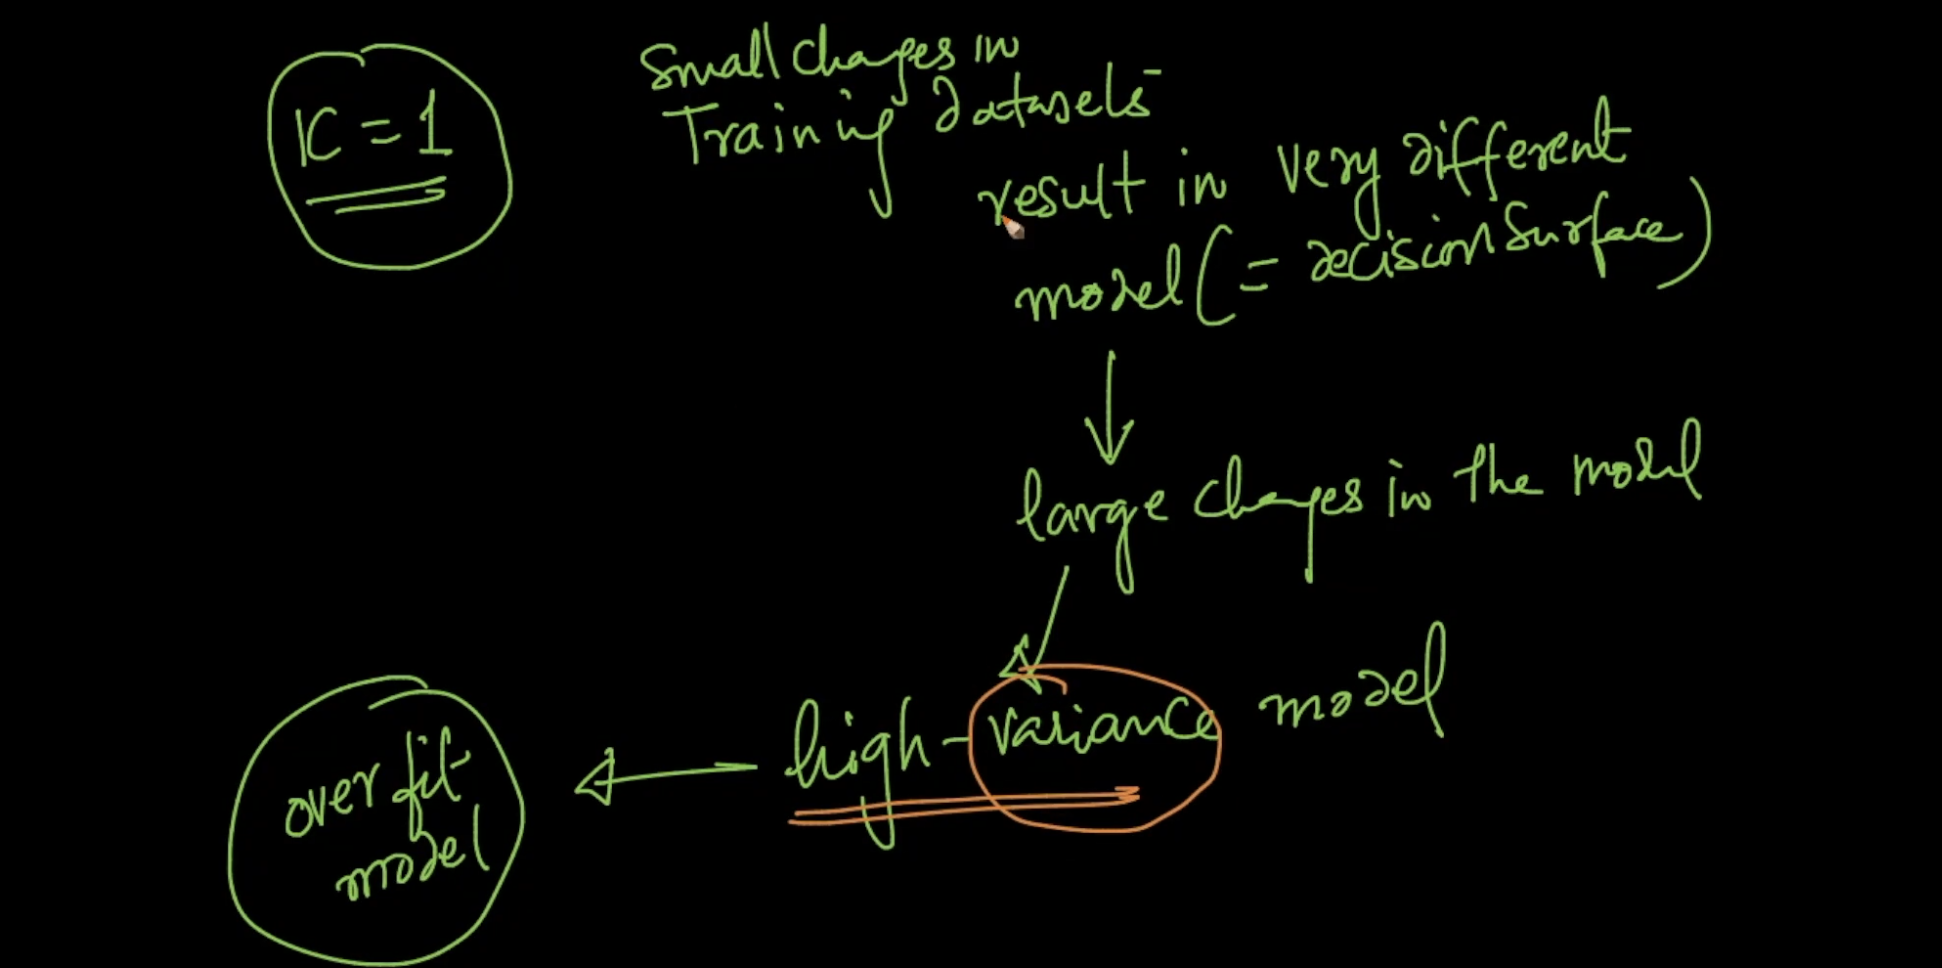 K = 1
Small changes in
Training datasets
result in very different
model (= decision surface)
large changes in the model
high-variance model
overfit
model